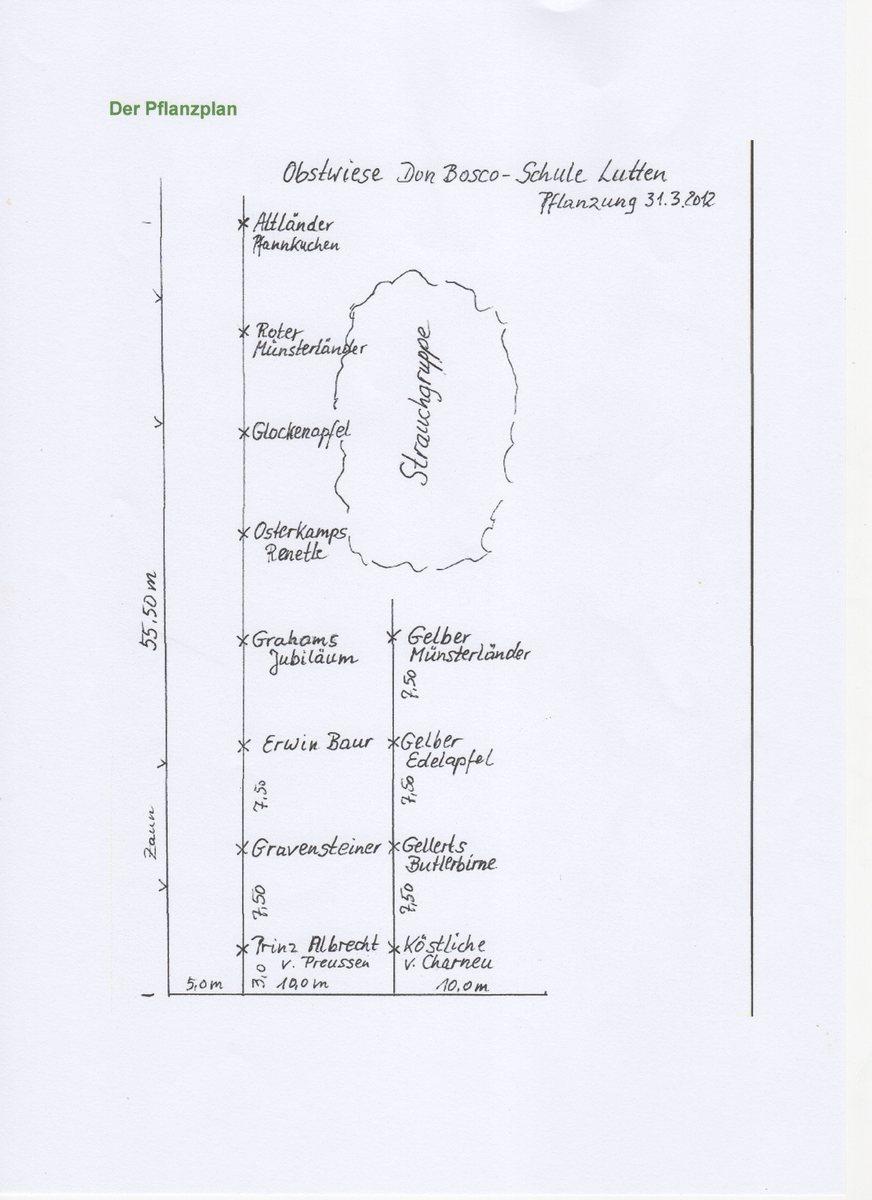 Der Pflanzplan
Obstwiese Don Bosco-Schule Lutten
Pflanzung 31.3.2012
Altländer
Pfannkuchen
Roter
Münsterländer
Strauchgruppe
Glockenapfel
Osterkamps
Renette
55,50 m
Grahams
Jubiläum
Gelber
Münsterländer
7,50
Erwin Baur
Gelber
Edelapfel
7,50
7,50
Zaun
Gravensteiner
Gellerts
Butterbirne
7,50
7,50
Prinz Albrecht
v. Preussen
Köstliche
v. Charneu
5,0 m
3,0
10,0 m
10,0 m